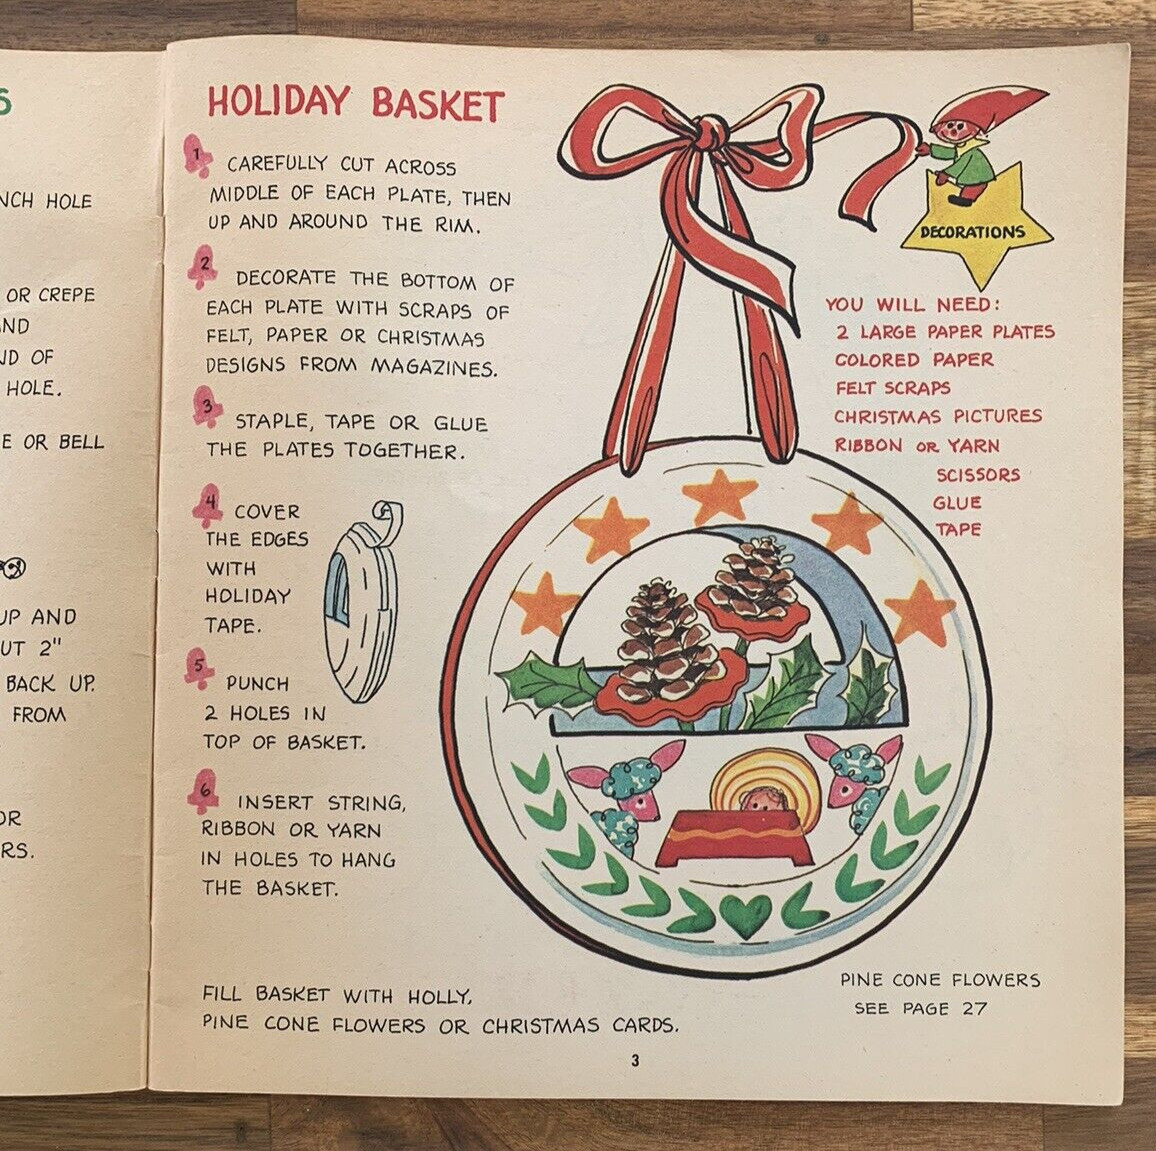 S
NCH HOLE
OR CREPE
ND
ND OF
HOLE.
E OR BELL
UP AND
UT 2"
BACK UP.
FROM
OR
RS.
HOLIDAY BASKET
1 CAREFULLY CUT ACROSS
MIDDLE OF EACH PLATE, THEN
UP AND AROUND THE RIM.
2 DECORATE THE BOTTOM OF
EACH PLATE WITH SCRAPS OF
FELT, PAPER OR CHRISTMAS
DESIGNS FROM MAGAZINES.
3 STAPLE, TAPE OR GLUE
THE PLATES TOGETHER.
4 COVER
THE EDGES
WITH
HOLIDAY
TAPE.
5 PUNCH
2 HOLES IN
TOP OF BASKET.
6 INSERT STRING,
RIBBON OR YARN
IN HOLES TO HANG
THE BASKET.
FILL BASKET WITH HOLLY,
PINE CONE FLOWERS OR CHRISTMAS CARDS.
DECORATIONS
YOU WILL NEED:
2 LARGE PAPER PLATES
COLORED PAPER
FELT SCRAPS
CHRISTMAS PICTURES
RIBBON OR YARN
SCISSORS
GLUE
TAPE
PINE CONE FLOWERS
SEE PAGE 27
3